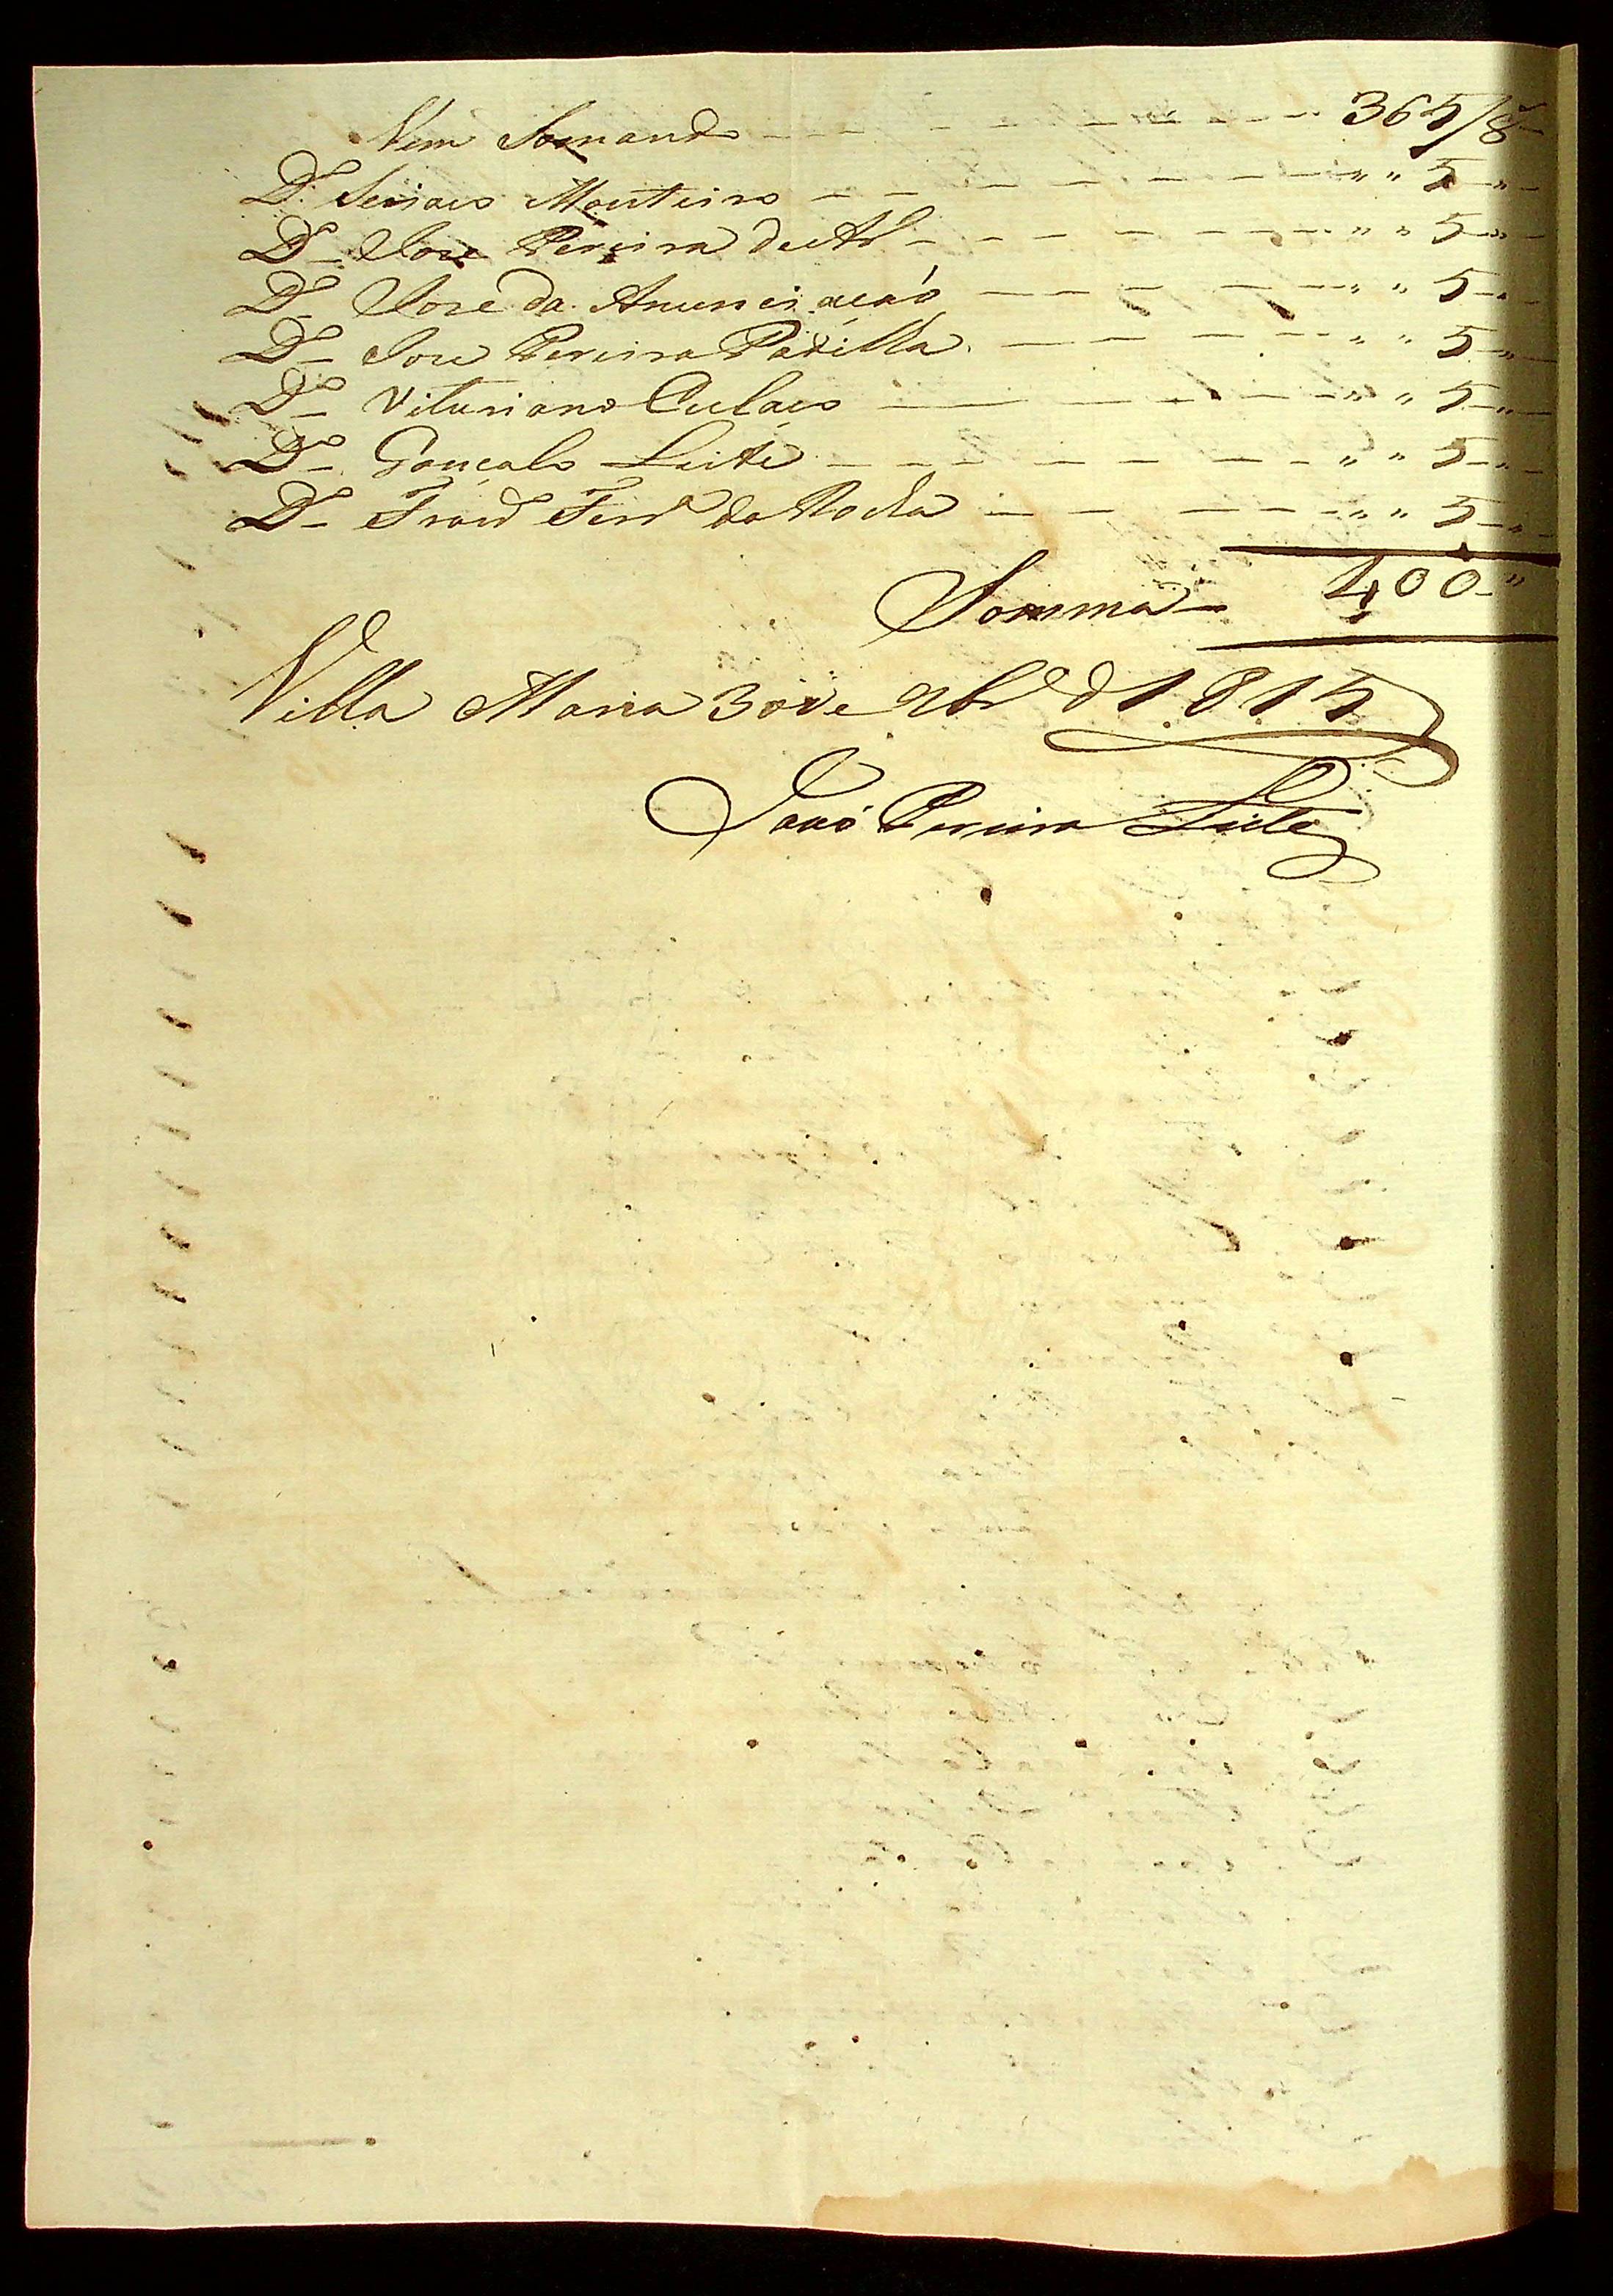 Vem Somando — 365/8
D.º Monteiro — " " 5 — "
D.º Jose Pereira de — " " 5 — "
D.º Jose da Anunciação — " " 5 — "
D.º Jose Pereira Padilha — " " 5 — "
D.º Vituriano — " " 5 — "
D.º Gonçalo Leite — " " 5 — "
D.º Fran.co Ferr.a da Rocha — " " 5 — "
Somma — 400 — "
Villa Maria 30 de de 1815
João Pereira Leite